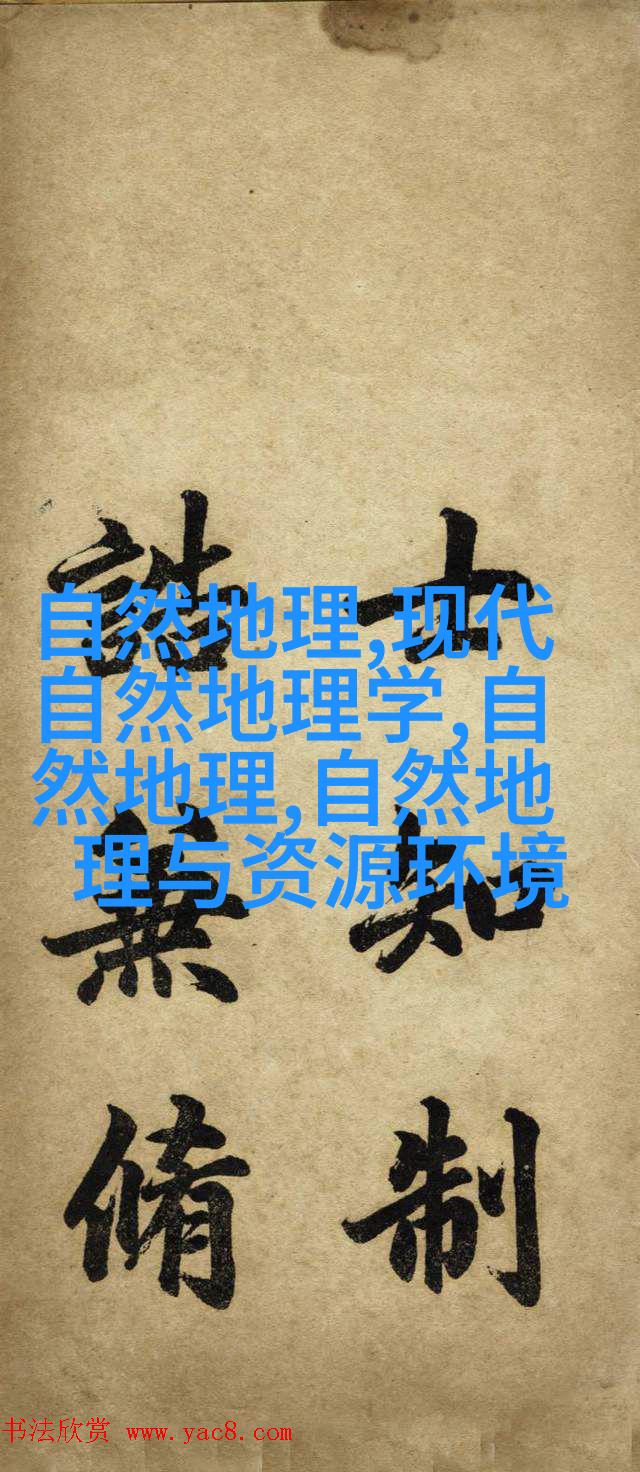 自然地理,现代
自然地理学,自
然地理,自然地
理与资源环境
士知制
誥兼脩
书法欣赏 www.yac8.com